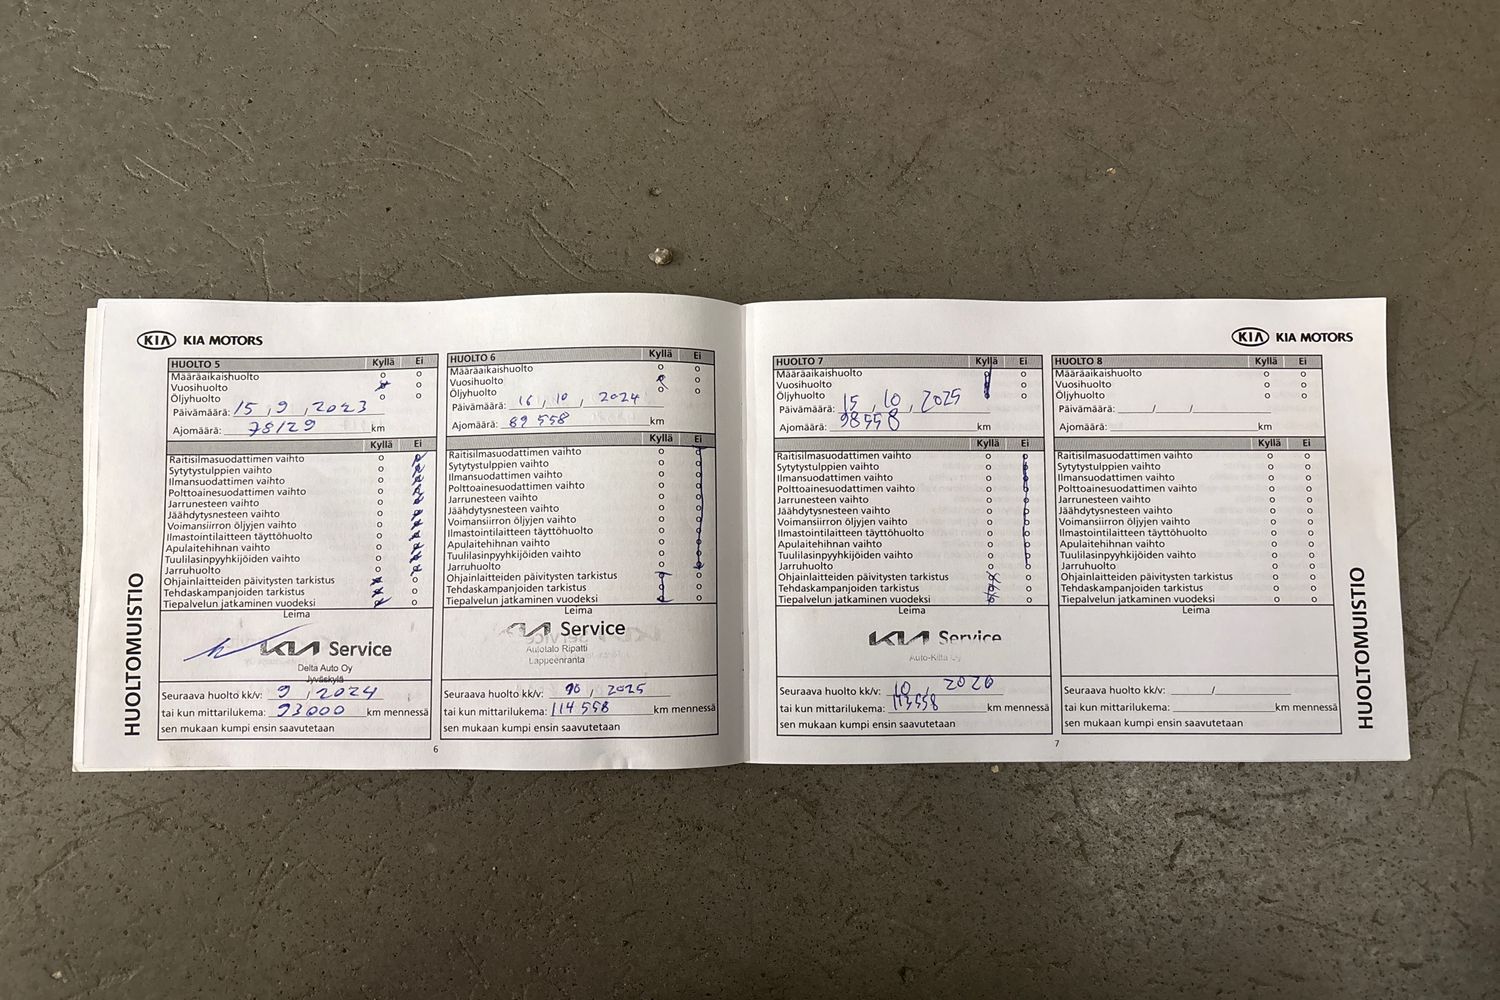 KIA KIA MOTORS
HUOLTOMUISTIO
HUOLTO 5 Kyllä Ei
Määräaikaishuolto o o
Vuosihuolto o
Öljyhuolto o o
Päivämäärä: 15 , 9 , 2023
Ajomäärä: 78129 km
Kyllä Ei
Raitisilmasuodattimen vaihto o
Sytytystulppien vaihto o
Ilmansuodattimen vaihto o
Polttoainesuodattimen vaihto o
Jarrunesteen vaihto o
Jäähdytysnesteen vaihto o
Voimansiirron öljyjen vaihto o
Ilmastointilaitteen täyttöhuolto o
Apulaitehihnan vaihto o
Tuulilasinpyyhkijöiden vaihto o
Jarruhuolto o
Ohjainlaitteiden päivitysten tarkistus o
Tehdaskampanjoiden tarkistus o
Tiepalvelun jatkaminen vuodeksi o
Leima
KIA Service
Delta Auto Oy
Jyväskylä
Seuraava huolto kk/v: 9 , 2024
tai kun mittarilukema: 93000 km mennessä
sen mukaan kumpi ensin saavutetaan
HUOLTO 6 Kyllä Ei
Määräaikaishuolto o o
Vuosihuolto o
Öljyhuolto o o
Päivämäärä: 16 , 10 , 2024
Ajomäärä: 89 558 km
Kyllä Ei
Raitisilmasuodattimen vaihto o
Sytytystulppien vaihto o
Ilmansuodattimen vaihto o
Polttoainesuodattimen vaihto o
Jarrunesteen vaihto o
Jäähdytysnesteen vaihto o
Voimansiirron öljyjen vaihto o
Ilmastointilaitteen täyttöhuolto o
Apulaitehihnan vaihto o
Tuulilasinpyyhkijöiden vaihto o
Jarruhuolto o
Ohjainlaitteiden päivitysten tarkistus o
Tehdaskampanjoiden tarkistus o
Tiepalvelun jatkaminen vuodeksi o
Leima
KIA Service
Autotalo Ripatti
Lappeenranta
Seuraava huolto kk/v: 10 , 2025
tai kun mittarilukema: 114 558 km mennessä
sen mukaan kumpi ensin saavutetaan
6
KIA KIA MOTORS
HUOLTO 7 Kyllä Ei
Määräaikaishuolto o
Vuosihuolto o
Öljyhuolto o
Päivämäärä: 15 , 10 , 2025
Ajomäärä: 98558 km
Kyllä Ei
Raitisilmasuodattimen vaihto o
Sytytystulppien vaihto o
Ilmansuodattimen vaihto o
Polttoainesuodattimen vaihto o
Jarrunesteen vaihto o
Jäähdytysnesteen vaihto o
Voimansiirron öljyjen vaihto o
Ilmastointilaitteen täyttöhuolto o
Apulaitehihnan vaihto o
Tuulilasinpyyhkijöiden vaihto o
Jarruhuolto o
Ohjainlaitteiden päivitysten tarkistus o
Tehdaskampanjoiden tarkistus o
Tiepalvelun jatkaminen vuodeksi o
Leima
KIA Service
Auto-Kilta Oy
Seuraava huolto kk/v: 10 , 2026
tai kun mittarilukema: 113558 km mennessä
sen mukaan kumpi ensin saavutetaan
HUOLTO 8 Kyllä Ei
Määräaikaishuolto o o
Vuosihuolto o o
Öljyhuolto o o
Päivämäärä: ______/______/____________
Ajomäärä: ________________________km
Kyllä Ei
Raitisilmasuodattimen vaihto o o
Sytytystulppien vaihto o o
Ilmansuodattimen vaihto o o
Polttoainesuodattimen vaihto o o
Jarrunesteen vaihto o o
Jäähdytysnesteen vaihto o o
Voimansiirron öljyjen vaihto o o
Ilmastointilaitteen täyttöhuolto o o
Apulaitehihnan vaihto o o
Tuulilasinpyyhkijöiden vaihto o o
Jarruhuolto o o
Ohjainlaitteiden päivitysten tarkistus o o
Tehdaskampanjoiden tarkistus o o
Tiepalvelun jatkaminen vuodeksi o o
Leima
Seuraava huolto kk/v: _______/____________
tai kun mittarilukema: ______________km mennessä
sen mukaan kumpi ensin saavutetaan
7
HUOLTOMUISTIO